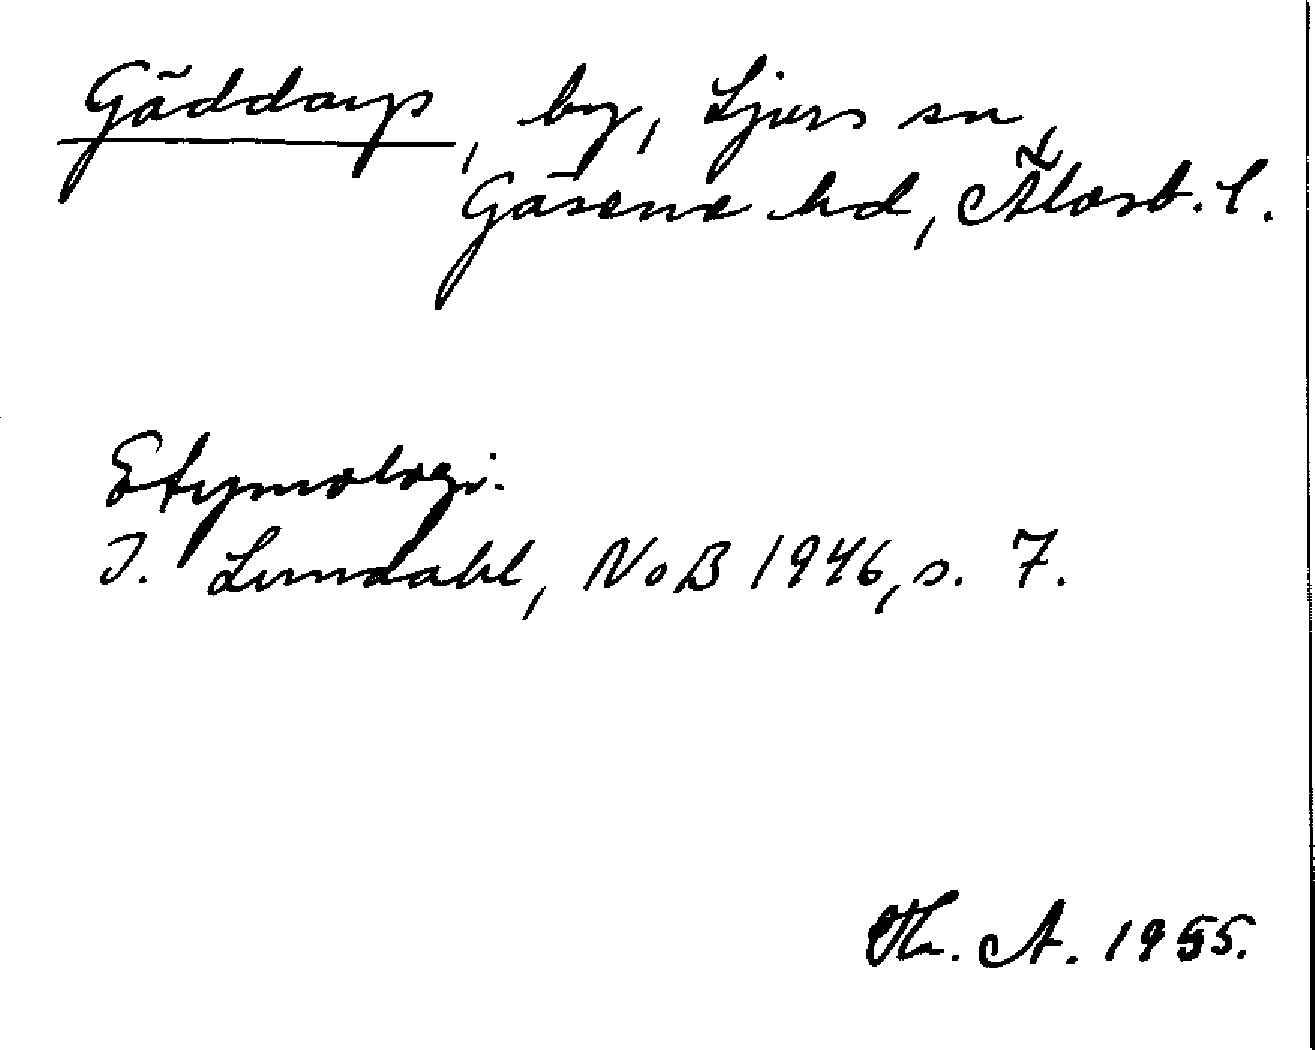 Gäddarp, by, Ljurs sn,
Gäsene hd, Älvsb. l.
Etymologi.
I. Lundahl, NoB 1946, s. 7.
Th. A. 1955.